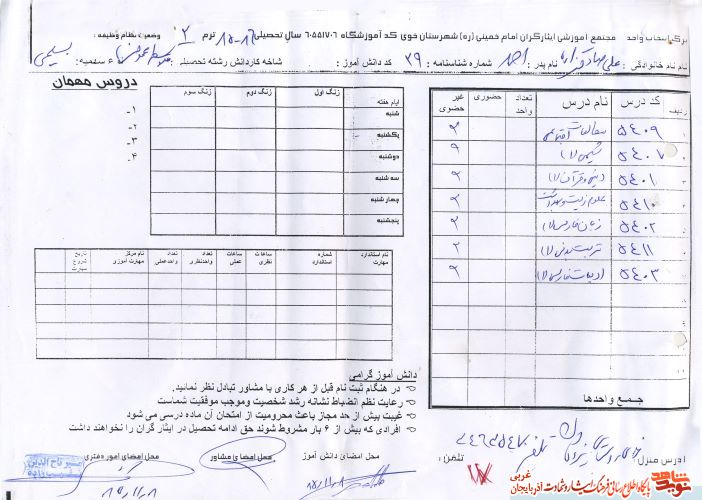 برگ انتخاب واحد مجتمع آموزشی ایثارگران امام خمینی (ره) شهرستان خوی کد آموزشگاه ۶۰۵۵۱۷۰۶ سال تحصیلی ۸۶-۸۵ ترم ۲ وضعیت نظام وظیفه :
نام نام خانوادگی : علی نام پدر : احمد شماره شناسنامه : ۲۹ کد دانش آموز : شاخه کاردانش رشته تحصیلی سهمیه : بسیجی
دروس مهمان
۱ -
۲ -
۳ -
۴ -
ایام هفته زنگ اول زنگ دوم زنگ سوم
شنبه
یکشنبه
دوشنبه
سه شنبه
چهارشنبه
پنجشنبه
ردیف کد درس نام درس تعداد واحد حضوری غیر حضوری
۵۴۰۹ مطالعات اجتماعی ۲
۵۴۰۷ شیمی (۱) ۲
۵۴۰۱ دینی و قرآن (۱) ۲
۵۴۱۰ علوم زیستی و بهداشت ۲
۵۴۰۲ زبان فارسی (۱) ۲
۵۴۱۱ تربیت بدنی (۱) ۲
۵۴۰۳ ادبیات فارسی (۱) ۲
جمع واحدها
نام استاندارد مهارت شماره استاندارد ساعات نظری ساعات عملی تعداد واحدنظری تعداد واحدعملی نام مرکز مهارت آموزی تاریخ شروع مهارت
دانش آموز گرامی
در هنگام ثبت نام قبل از هر کاری با مشاور تبادل نظر نمایید.
رعایت نظم انضباط نشانه رشد شخصیت وموجب موفقیت شماست
غیبت بیش از حد مجاز باعث محرومیت از امتحان آن ماده درسی می شود
افرادی که بیش از ۶ بار مشروط شوند حق ادامه تحصیل در ایثار گران را نخواهند داشت
محل امضای دانش آموز محل امضای مشاور محل امضای امور دفتری
آدرس منزل : تلفن :
نوید شاهد
پایگاه اطلاع رسانی فرهنگ ایثار و شهادت آذربایجان غربی